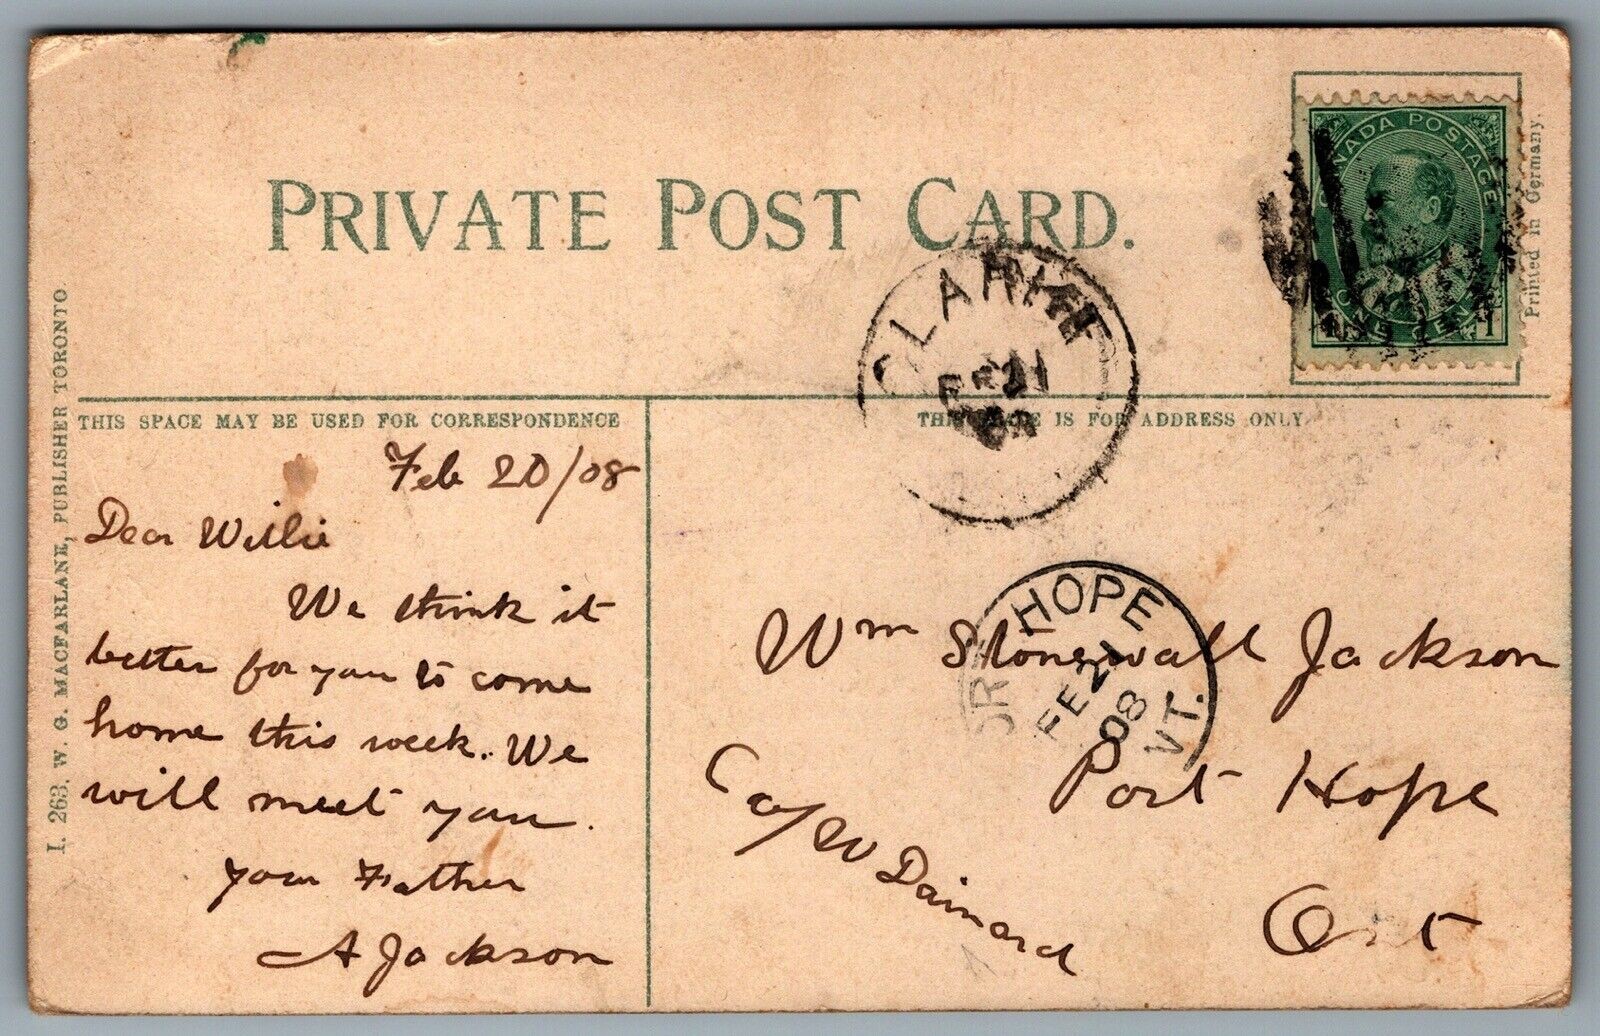 PRIVATE POST CARD.
CANADA POSTAGE
ONE CENT
1
Printed in Germany.
I. 263. W. G. MACFARLANE, PUBLISHER TORONTO
CLARKE
FE 21
THIS SPACE MAY BE USED FOR CORRESPONDENCE
THIS SIDE IS FOR ADDRESS ONLY.
Feb 20/08
Dear Willie
We think it
better for you to come
home this week. We
will meet you.
your Father
A Jackson
PORT HOPE
FE 21
08
Wm Stonewall Jackson
Port Hope
C/o W Dainard
Ont